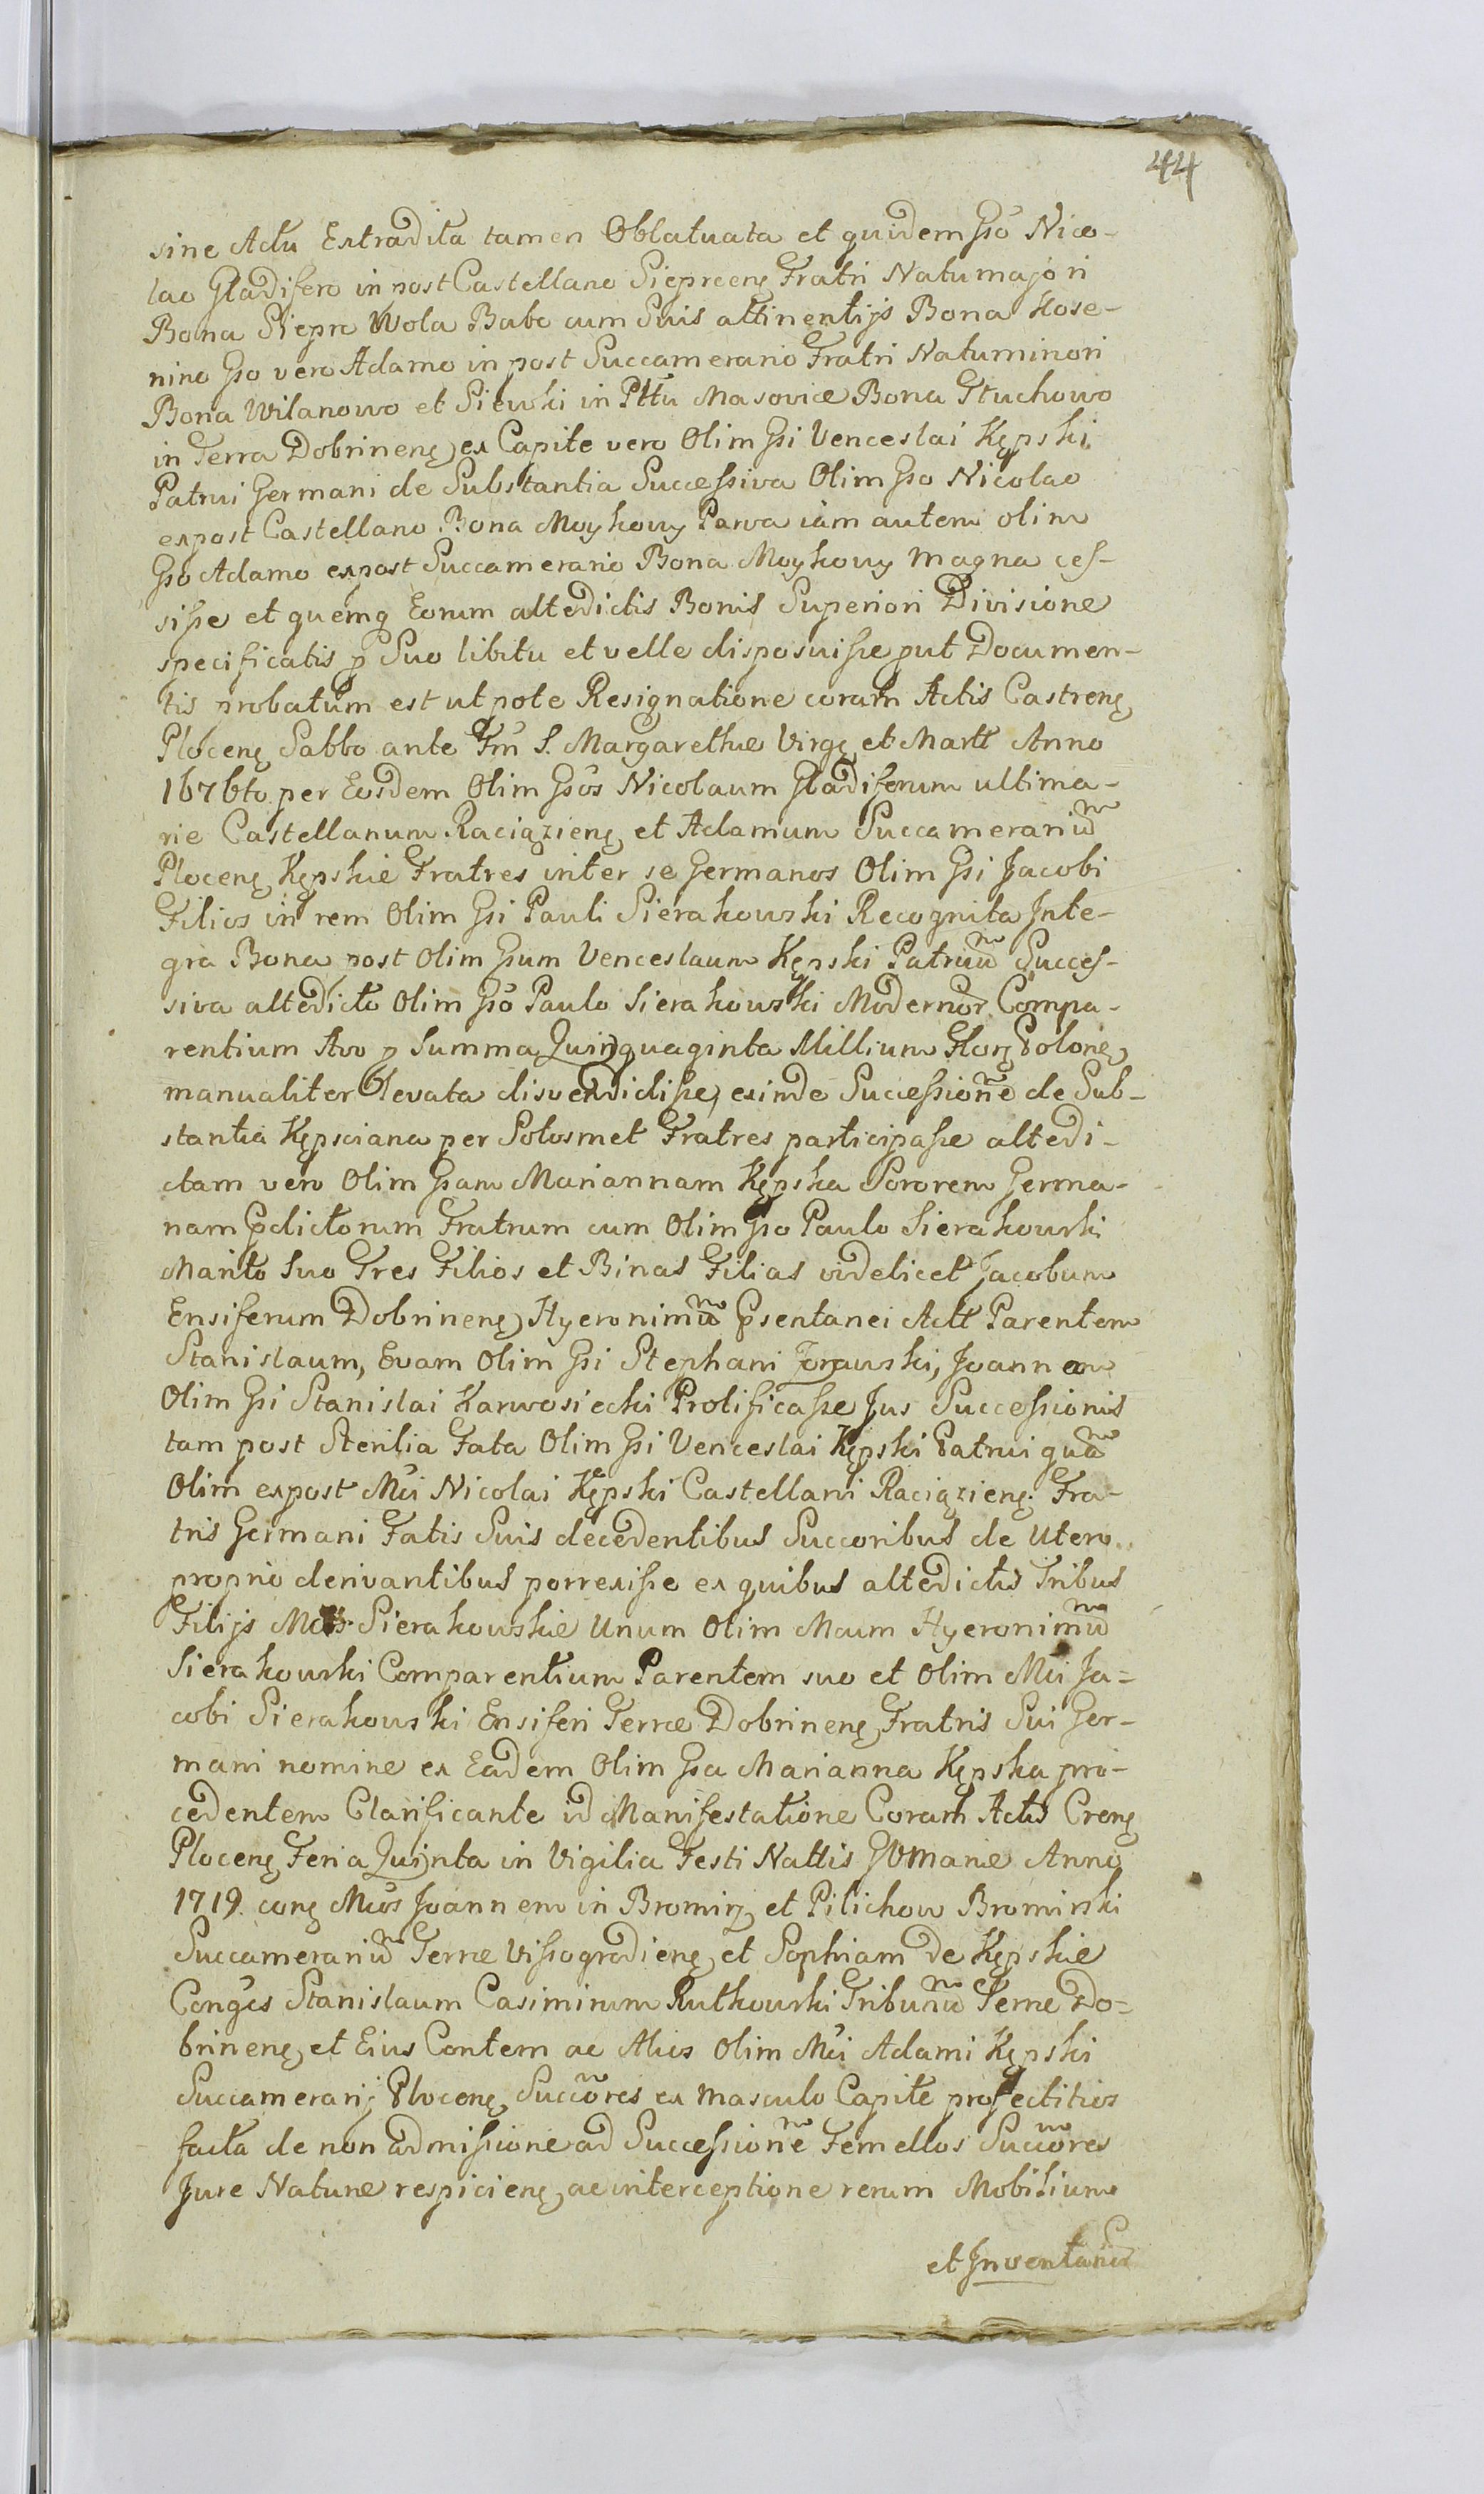 44
sine Actu Extradita tamen Oblatuata et quidem Gso Nico-
lao Gladifero in post Castellano Sieprcenę Fratri Natumajori
Bona Siepre Wola Babc cum Suis attinentijs Bona Kose-
nino Gso vero Adamo in post Succamerario Fratri Natuminori
Bona Wilanowo et Siewki in Pttu Masoviæ Bona Głuchowo
in Terra Dobrinenę ex Capite vero Olim Gsi Venceslai Kępski
Patrui Germani de Substantia Successiva Olim Gso Nicolao
expost Castellano Bona Moykowy Parva iam autem olim
Gso Adamo expost Succamerario Bona Moykowy Magna ces-
sisse et quemq Eorum altedictis Bonis Superiori Divisione
specificatis p Suo libitu et velle disposuisse put Documen-
tis probatum est utpote Resignatione coram Actis Castrenę
Plocenę Sabbo ante Fm S. Margarethæ Virgę et Martt Anno
1676to per Eosdem Olim Gsos Nicolaum Gladiferum ultima-
rie Castellanum Raciązienę et Adamum Succamerariū
Plocenę Kępskie Fratres inter se Germanos Olim Gsi Jacobi
Filios in rem Olim Gsi Pauli Sierakowski Recognita Inte-
gra Bona post Olim Gsum Venceslaum Kępski Patruū Succes-
siva altedicto Olim Gso Paulo Sierakowski Modernor Compa-
rentium Avo p Summa Quinquaginta Millium Florę Polonę
manualiter levata disvendidisse, exinde Successionē de Sub-
stantia Kępsciana per Solosmet Fratres participasse altedi-
ctam vero Olim Gsam Mariannam Kępska Sororem Germa-
nam Pdictorum Fratrum cum Olim Gso Paulo Sierakowski
Marito Suo Tres Filios et Binas Filias videlicet Jacobum
Ensiferum Dobrinenę, Hyeronimū Psentanei Actt Parentem
Stanislaum, Evam Olim Gsi Stephani Zorawski, Joannam
Olim Gsi Stanislai Karwosiecki Prolificasse Jus Successionis
tam post Sterilia Fata Olim Gsi Venceslai Kępski Patrui quā
Olim expost Mci Nicolai Kępski Castellani Raciązienę Fra-
tris Germani Fatis Suis decedentibus Succoribus de Utero
proprio derivantibus porrexisse ex quibus altedictis Tribus
Filijs Sierakowskie Unum Olim Mcum Hyeronimū
Sierakowski Comparentium Parentem suo et Olim Mci Ja-
cobi Sierakowski Ensiferi Terræ Dobrinenę Fratris Sui Ger-
mani nomine ex Eadem Olim Gsa Marianna Kępska pro-
cedentem Clarificante id Manifestatione Coram Actis Crenę
Plocenę Feria Quinta in Vigilia Festi Nattis GVMariæ Anno
1719. conę Mcos Joannem in Bromirz et Pilichow Bromirski
Succamerariū Terræ Vissogradienę et Sophiam de Kępskie
Conges Stanislaum Casimirum Rutkowski Tribunū Terræ Do-
brinenę et Eius Contem ac Alios Olim Mci Adami Kępski
Succamerarij Plocenę Succores ex Masculo Capite profectitios
facta de non admissione ad Successionē Femellos Succores
Jure Naturæ respicienę, ac interceptione rerum Mobilium
et Inventariū